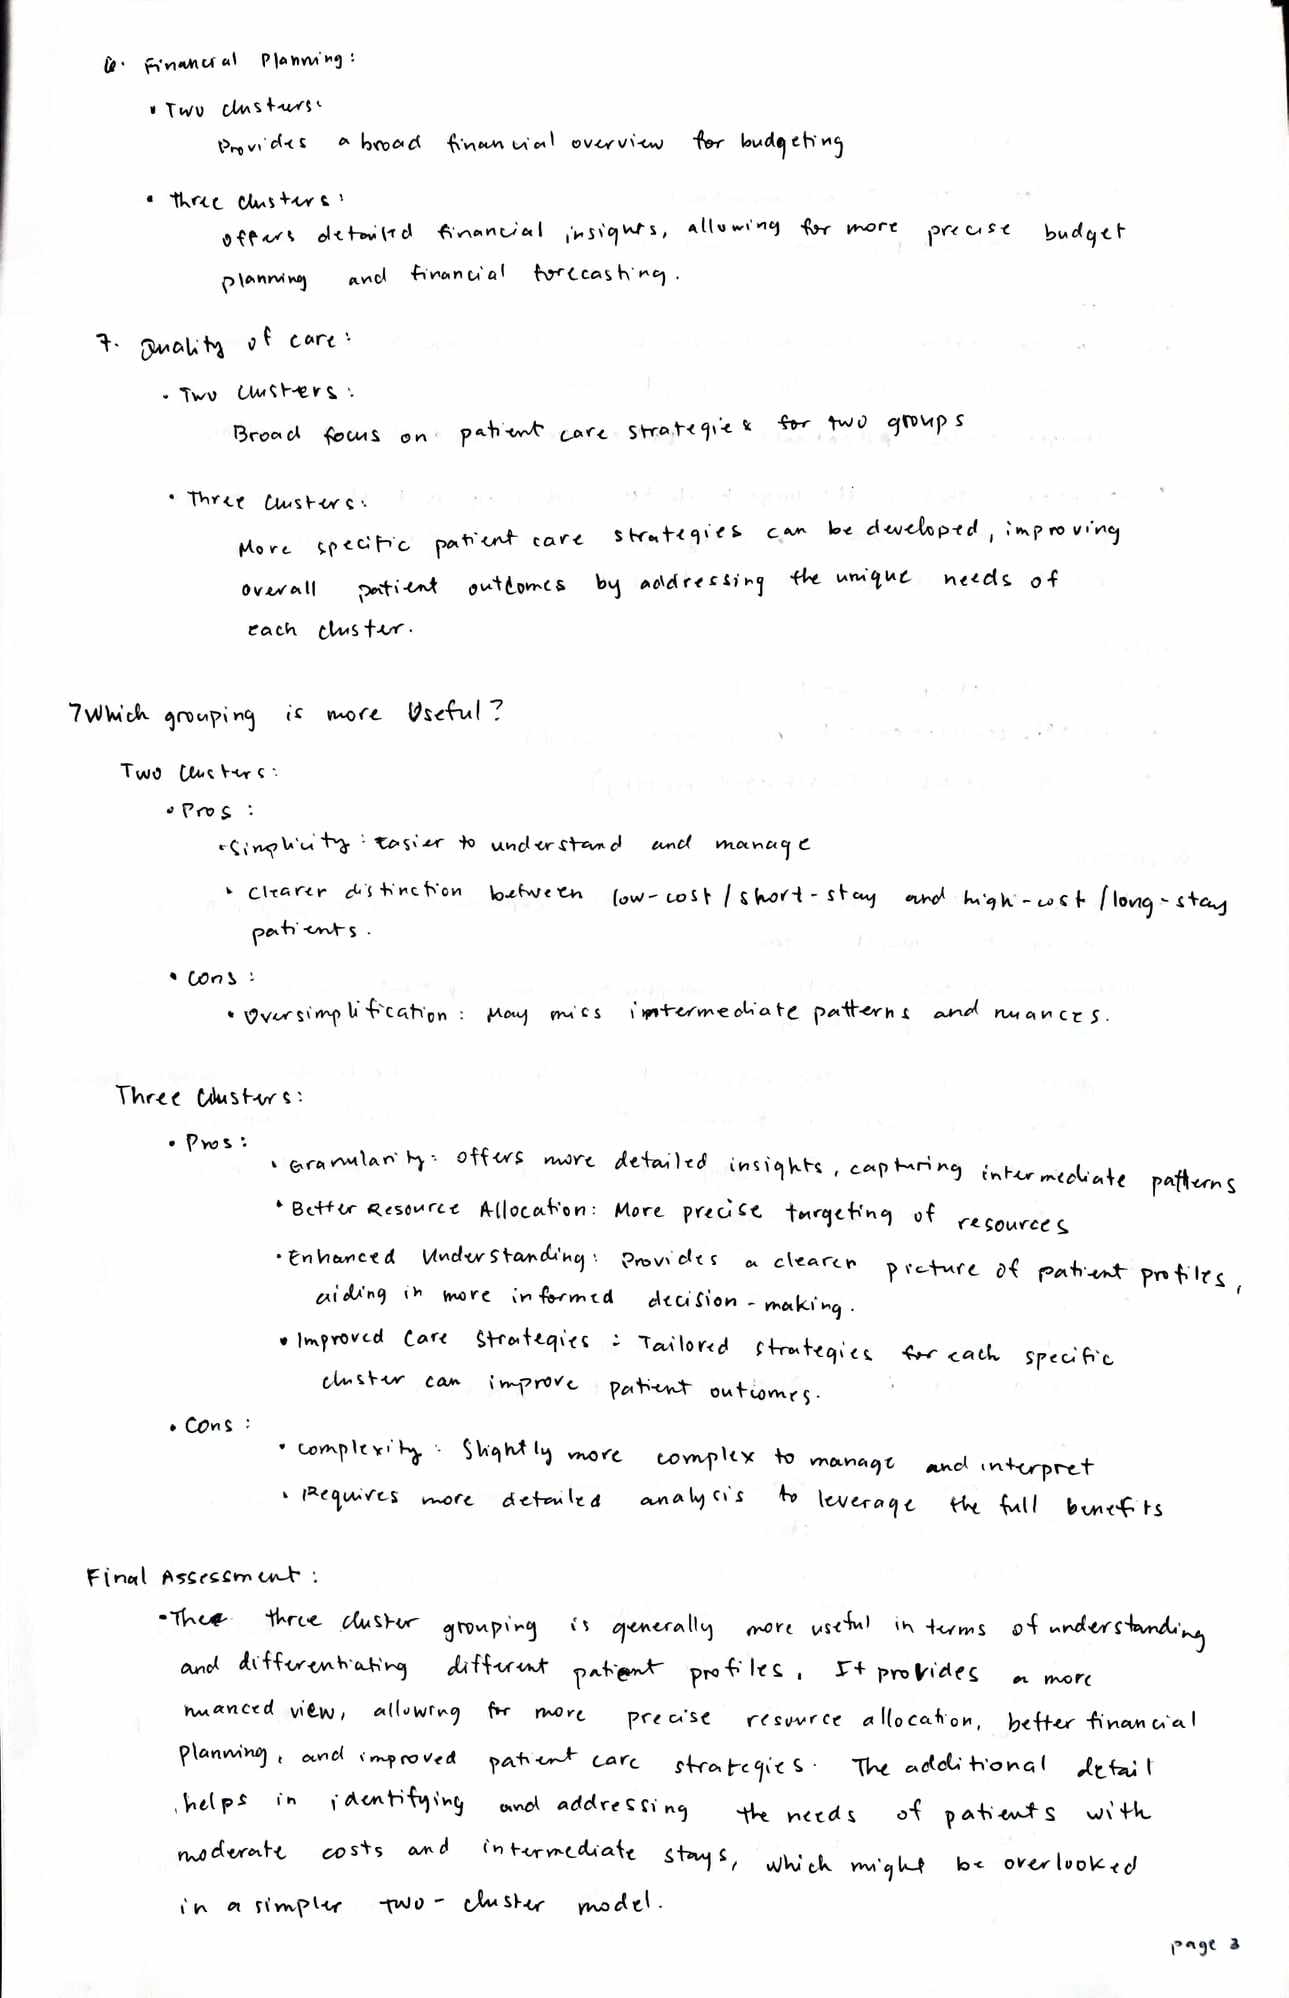 6. Financial Planning:
• Two clusters:
Provides a broad financial overview for budgeting
• Three clusters:
offers detailed financial insights, allowing for more precise budget
planning and financial forecasting.
7. Quality of care:
• Two clusters:
Broad focus on patient care strategies for two groups
• Three clusters:
More specific patient care strategies can be developed, improving
overall patient outcomes by addressing the unique needs of
each cluster.
7 Which grouping is more Useful?
Two clusters:
• Pros:
• Simplicity: Easier to understand and manage
• Clearer distinction between low-cost/short-stay and high-cost/long-stay
patients.
• Cons:
• Oversimplification: May miss intermediate patterns and nuances.
Three Clusters:
• Pros:
• Granularity: offers more detailed insights, capturing intermediate patterns
• Better Resource Allocation: More precise targeting of resources
• Enhanced Understanding: Provides a clearer picture of patient profiles,
aiding in more informed decision-making.
• Improved Care Strategies: Tailored strategies for each specific
cluster can improve patient outcomes.
• Cons:
• Complexity: Slightly more complex to manage and interpret
• Requires more detailed analysis to leverage the full benefits
Final Assessment:
• The three cluster grouping is generally more useful in terms of understanding
and differentiating different patient profiles. It provides a more
nuanced view, allowing for more precise resource allocation, better financial
planning, and improved patient care strategies. The additional detail
helps in identifying and addressing the needs of patients with
moderate costs and intermediate stays, which might be overlooked
in a simpler two-cluster model.
page 3